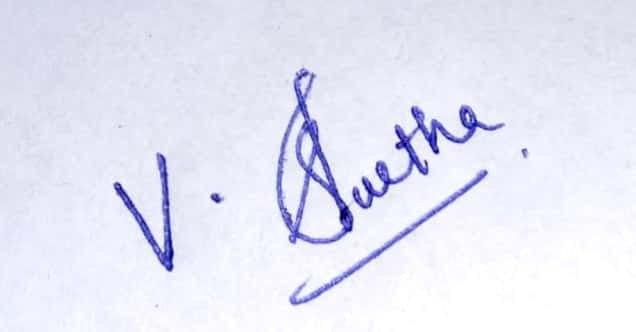 V. Swetha